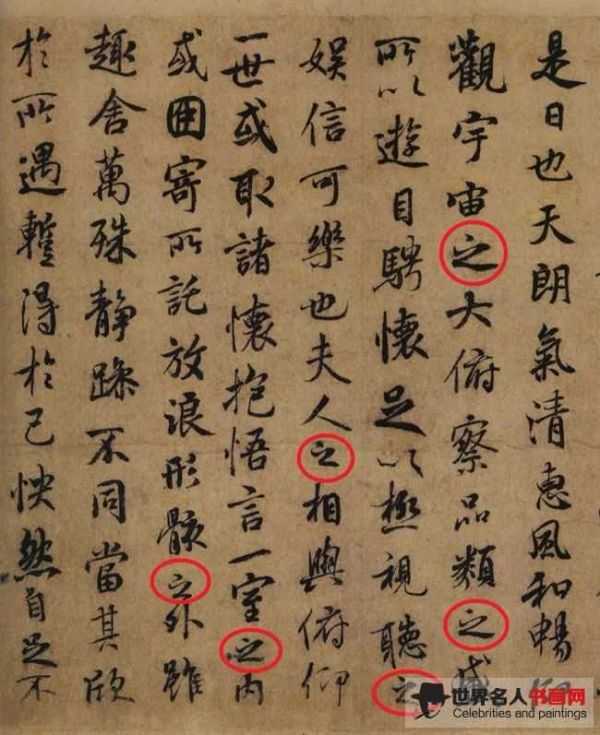 是日也天朗氣清惠風和暢仰
觀宇宙之大俯察品類之盛
所以遊目騁懷足以極視聽之
娛信可樂也夫人之相與俯仰
一世或取諸懷抱悟言一室之內
或因寄所託放浪形骸之外雖
趣舍萬殊静躁不同當其欣
於所遇蹔得於己怏然自足不
世界名人书画网
Celebrities and paintings